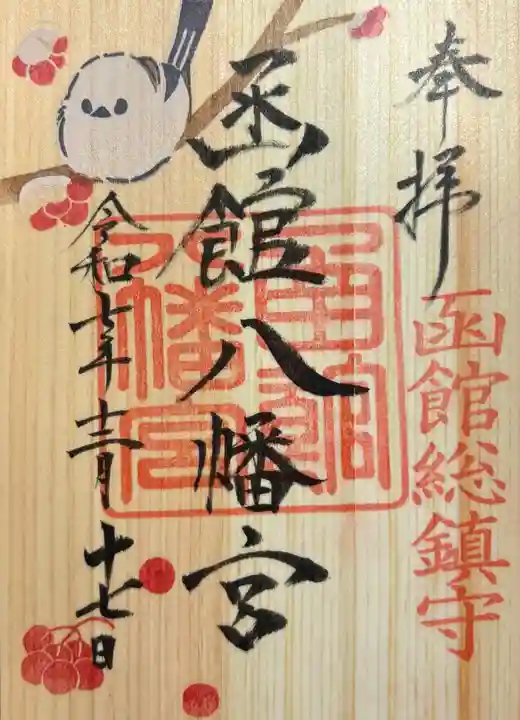 奉拝
函館総鎮守
函館八幡宮
函館八幡宮
令和七年十二月十七日